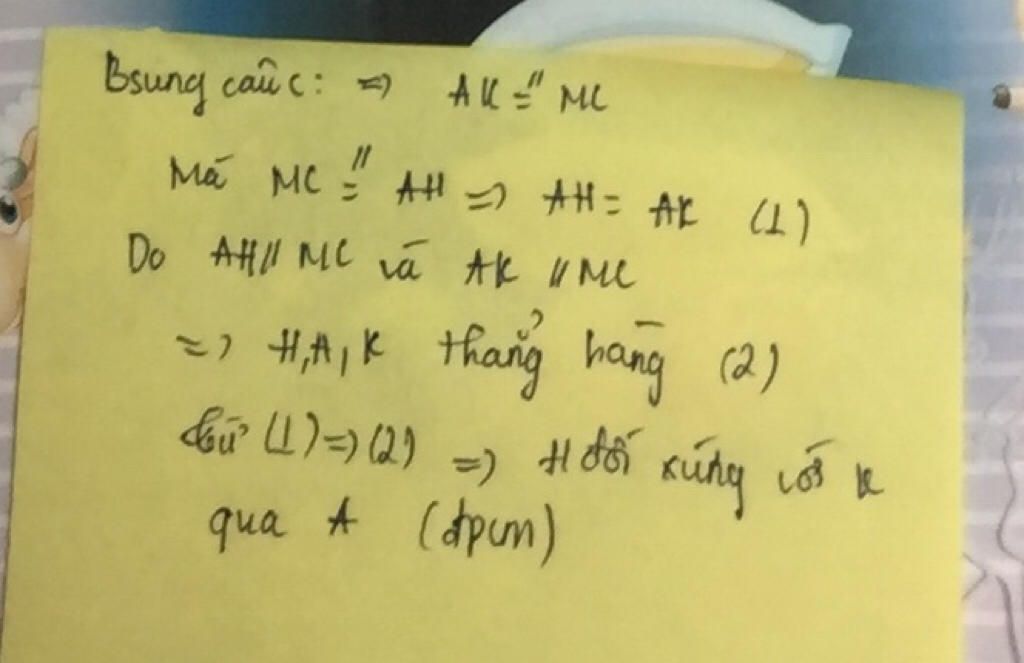 Bsung câu c: => AK =// MC
Mà MC =// AH => AH = AK (1)
Do AH // MC và AK // MC
=> H, A, K thẳng hàng (2)
từ (1) => (2) => H đối xứng với K
qua A (đpcm)